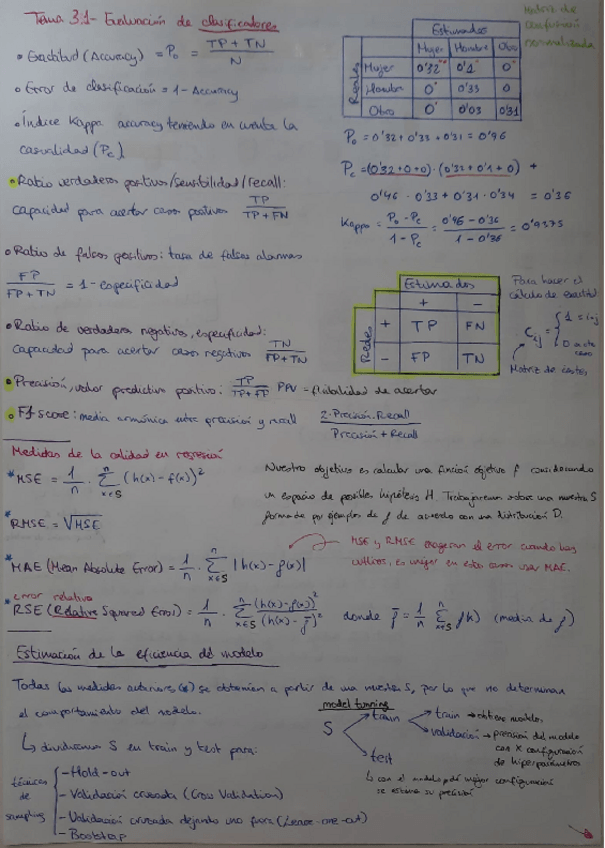 Tema 3.1 - Evaluación de clasificadores
• Exactitud (Accuracy) = P₀ = TP + TN / N
• Error de clasificación = 1 - Accuracy
• Índice Kappa accuracy teniendo en cuenta la
casualidad (Pc)
• Ratio verdaderos positivos/sensibilidad/recall:
capacidad para acertar casos positivos TP / TP + FN
• Ratio de falsos positivos: tasa de falsas alarmas
FP / FP + TN = 1 - especificidad
• Ratio de verdaderos negativos, especificidad:
capacidad para acertar casos negativos TN / FP + TN
• Precisión, valor predictivo positivo: TP / TP + FP PPV = fiabilidad de acertar
• F1 score: media armónica entre precisión y recall 2·Precisión·Recall / Precisión + Recall
Matriz de
confusión
normalizada
Estimados
Mujer Hombre Otro
Reales
Mujer 0'32 0'1 0
Hombre 0 0'33 0
Otro 0 0'03 0'31
P₀ = 0'32 + 0'33 + 0'31 = 0'96
Pc = (0'32 + 0 + 0) · (0'33 + 0'1 + 0) +
0'46 · 0'33 + 0'31 · 0'34 = 0'36
Kappa = P₀ - Pc / 1 - Pc = 0'96 - 0'36 / 1 - 0'36 = 0'9375
Estimados
+ -
Reales
+ TP FN
- FP TN
Para hacer el
cálculo de
Cij = { 1 = i≠j
0
Matriz de costes
Medidas de la calidad en regresión
* MSE = 1/n · Σ x∈S n (h(x) - f(x))²
* RMSE = √MSE
* MAE (Mean Absolute Error) = 1/n · Σ x∈S n |h(x) - f(x)|
error relativo
* RSE (Relative Squared Error) = 1/n · Σ x∈S n (h(x) - f(x))² / (h(x) - f̄)² donde f̄ = 1/n Σ x∈S n f(x) (media de f)
Nuestro objetivo es calcular una función objetivo f considerando
un espacio de posibles hipótesis H. Trabajaremos sobre una muestra S
formada por ejemplos de f de acuerdo con una distribución D.
MSE y RMSE exageran el error cuando hay
outliers, es mejor en estos casos usar MAE.
Estimación de la eficiencia del modelo
Todas las medidas anteriores (*) se obtenían a partir de una muestra S, por lo que no determinan
el comportamiento del modelo.
↳ dividiremos S en train y test para:
model tunning
S
train
train → obtiene modelos
validación → precisión del modelo
con X configuración
de hiperparámetros
test
↳ con el modelo de mejor configuración
se estima su precisión
técnicas
de
sampling
- Hold-out
- Validación cruzada (Cross Validation)
- Validación cruzada dejando uno fuera (Leave-one-out)
- Bootstrap